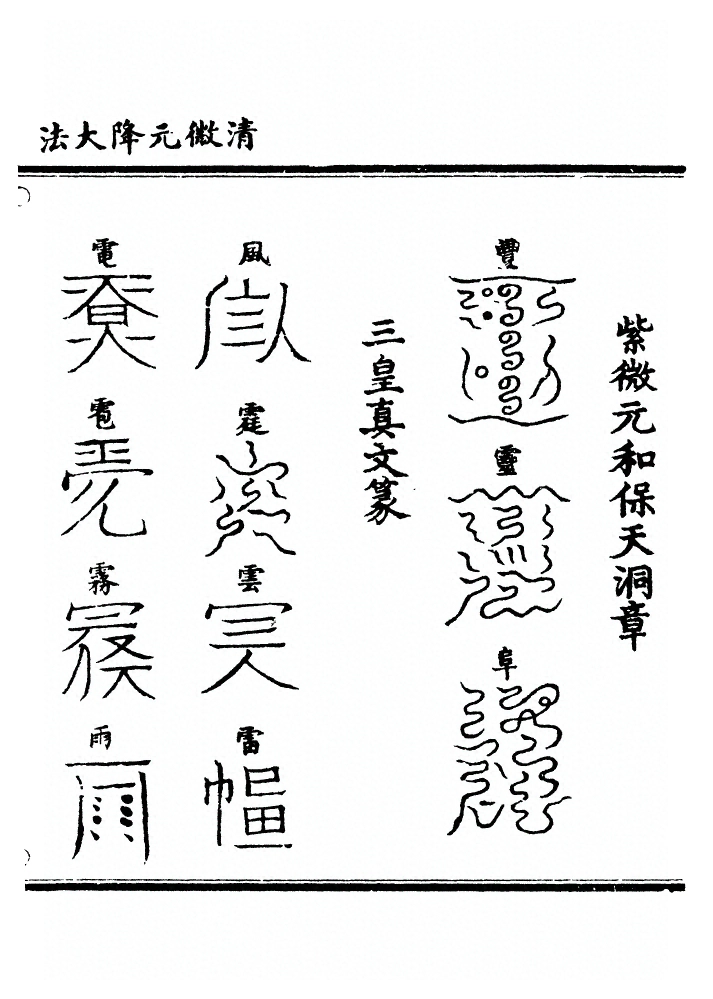 清微元降大法
紫微元和保天洞章
豐
靈
阜
三皇真文篆
風
霆
雲
雷
電
雹
霧
雨